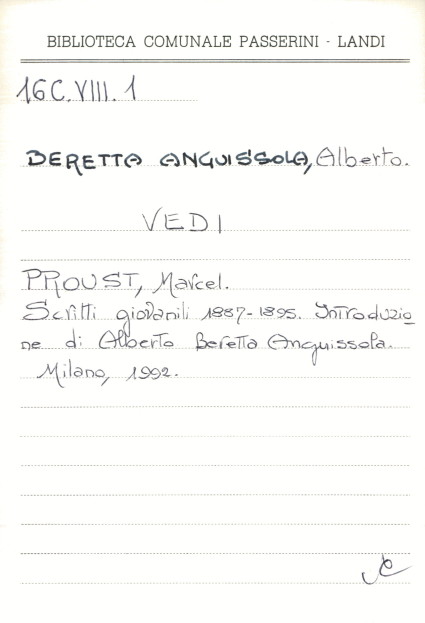 BIBLIOTECA COMUNALE PASSERINI - LANDI
16C.VIII.1
BERETTA ANGUISSOLA, Alberto.
VEDI
PROUST, Marcel.
Scritti giovanili 1887-1895. Introduzio
ne di Alberto Beretta Anguissola.
Milano, 1992.